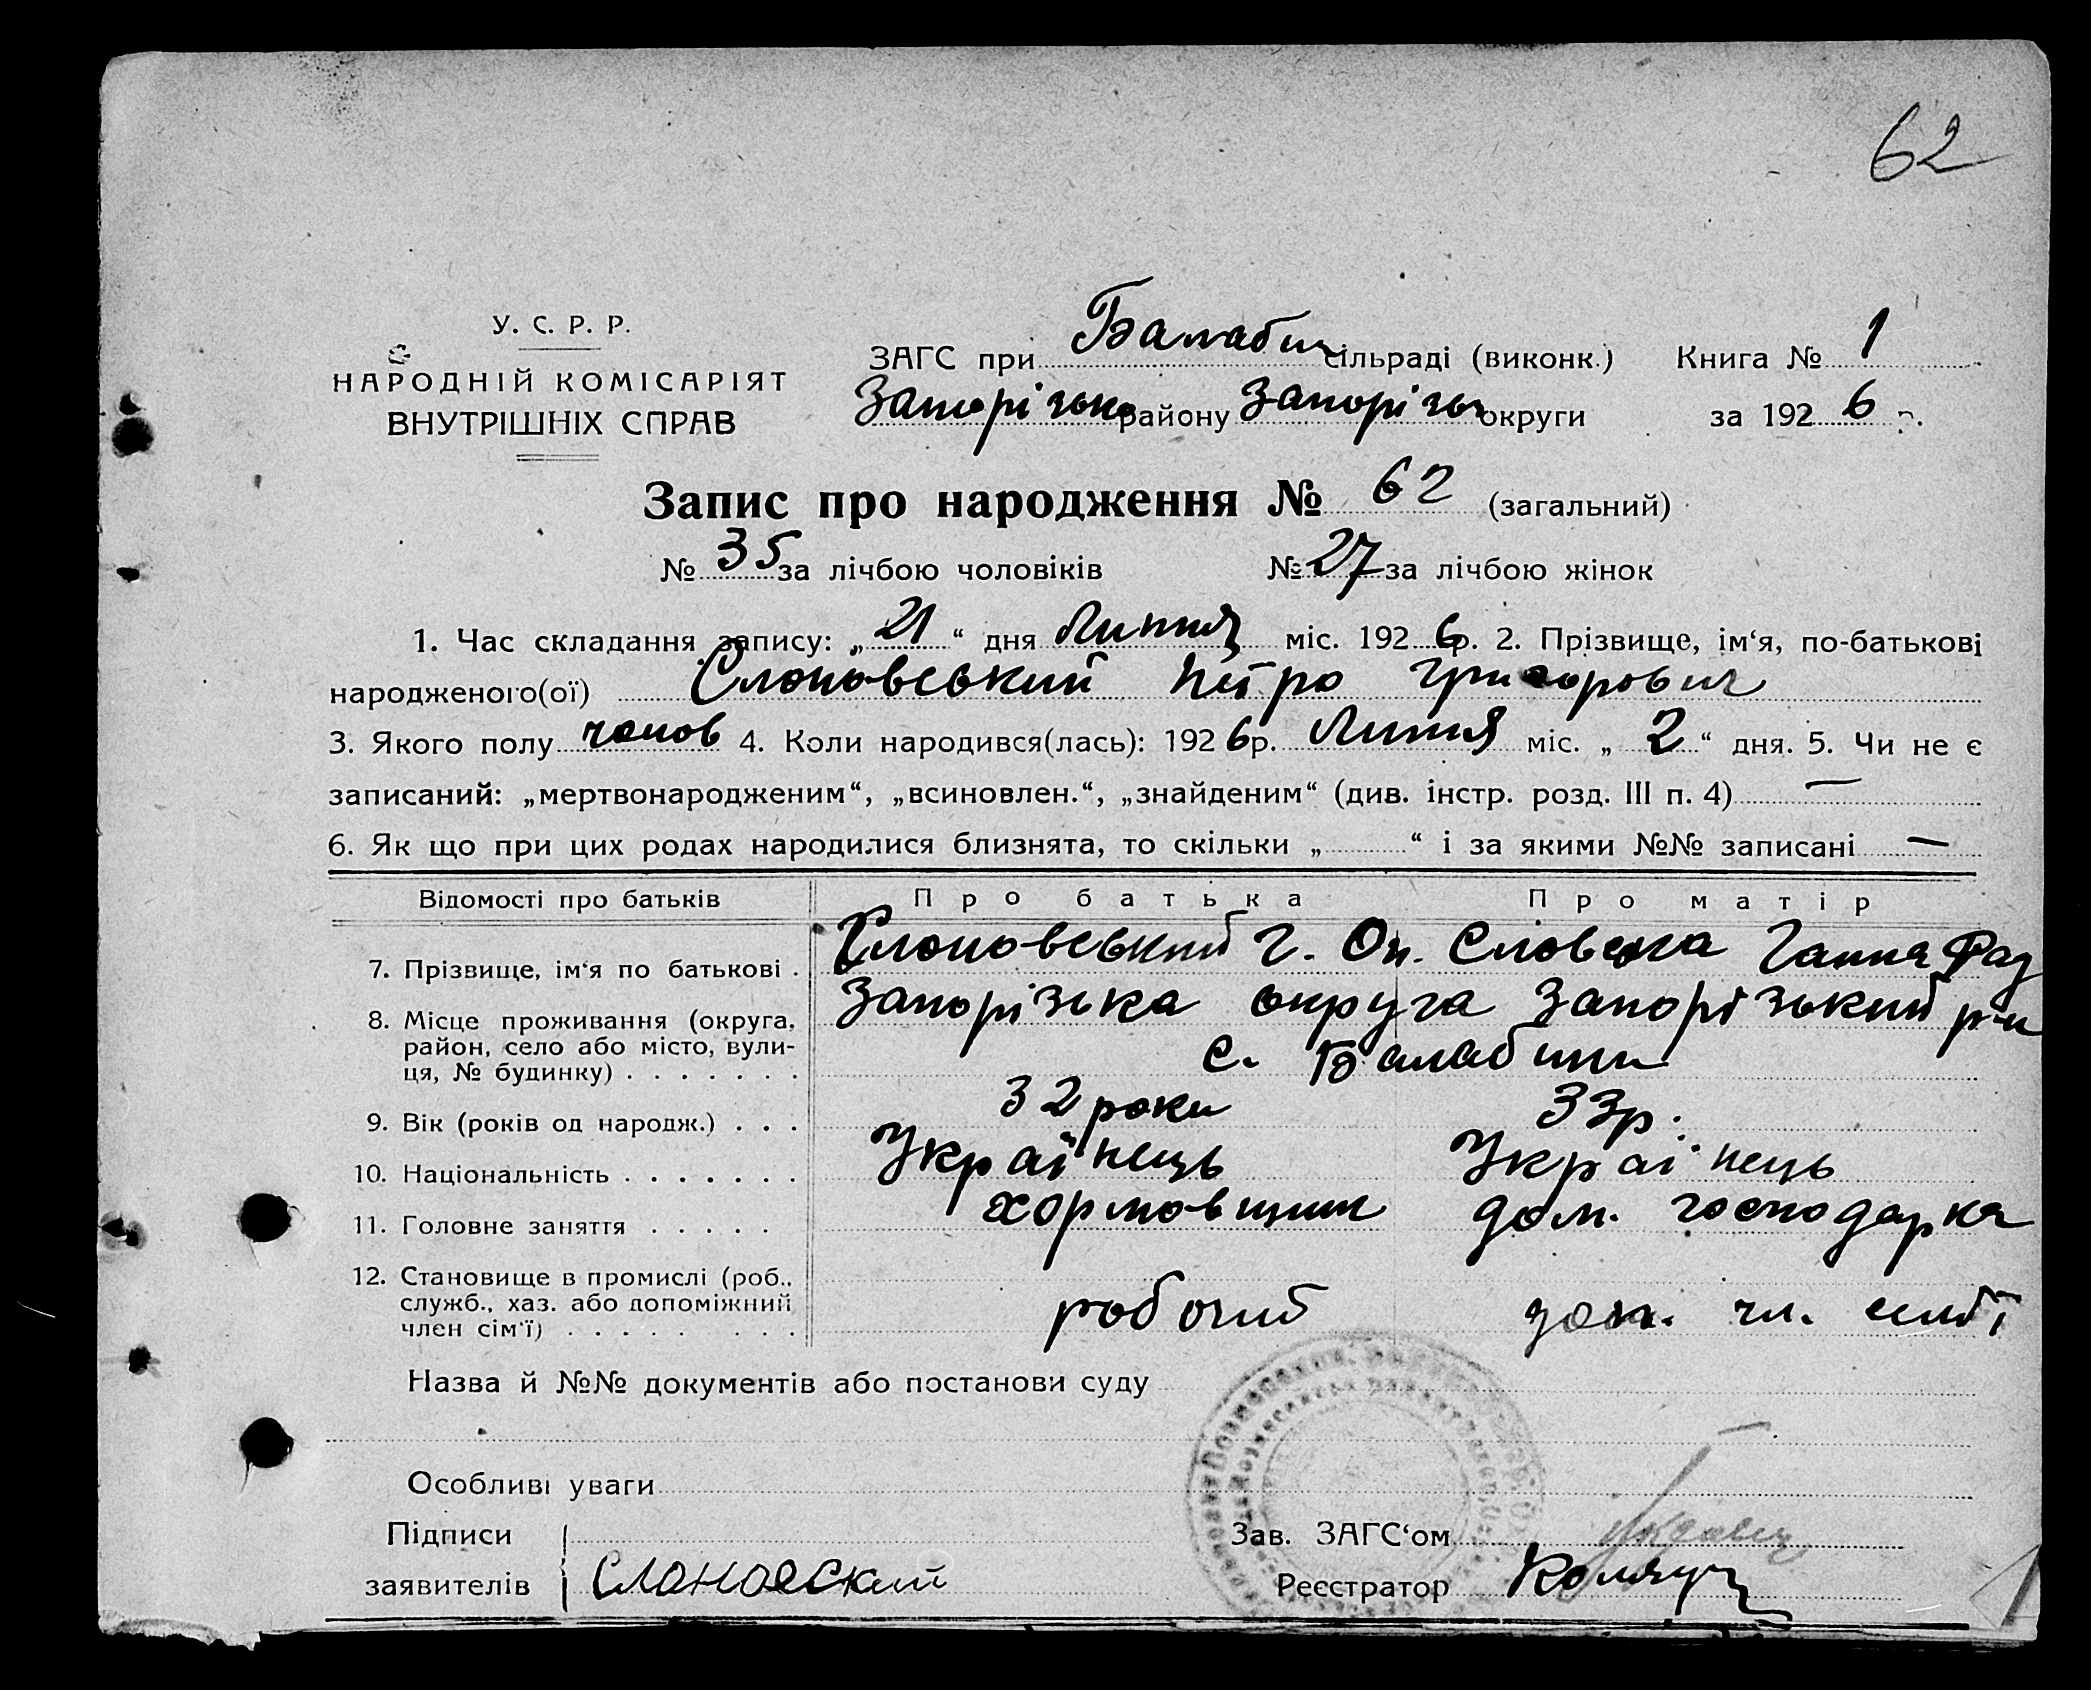 62
У. С. Р. Р.
НАРОДНІЙ КОМІСАРІЯТ
ВНУТРІШНІХ СПРАВ
ЗАГС при Балабин сільраді (виконк.) Книга № 1
Запорізько району Запорізь округи за 192 6 р.
Запис про народження № 62 (загальний)
№ 35 за лічбою чоловіків № 27 за лічбою жінок
1. Час складання запису: „ 21 “ дня Липня міс. 192 6 р. 2. Прізвище, ім‘я, по-батькові
народженого(ої) Слоновський Петро Григорович
3. Якого полу чолов 4. Коли народився(лась): 192 6 р. Липня міс. „ 2 “ дня. 5. Чи не є
записаний: „мертвонародженим“, „всиновлен.“, „знайденим“ (див. інстр. розд. III п. 4) —
6. Як що при цих родах народилися близнята, то скільки „ “ і за якими №№ записані —
Відомості про батьків Про батька Про матір
7. Прізвище, ім‘я по батькові . Слоновський Г. Оп. Ганна
8. Місце проживання (округа, Запорізька округа Запорізький р-н
район, село або місто, вули-
ця, № будинку) . . . . . . . с. Балабине
9. Вік (років од народж.) . . . 32 роки 33 р.
10. Національність . . . . . . . Українець Українець
11. Головне заняття . . . . . хормовщик дом. господарка
12. Становище в промислі (роб.,
служб., хаз. або допоміжний
член сім‘ї) . . . . . . . . робочий доп. чл. сімї
Назва й №№ документів або постанови суду
Особливі уваги
Підписи Зав. ЗАГС‘ом
заявителів Слоновский Реєстратор